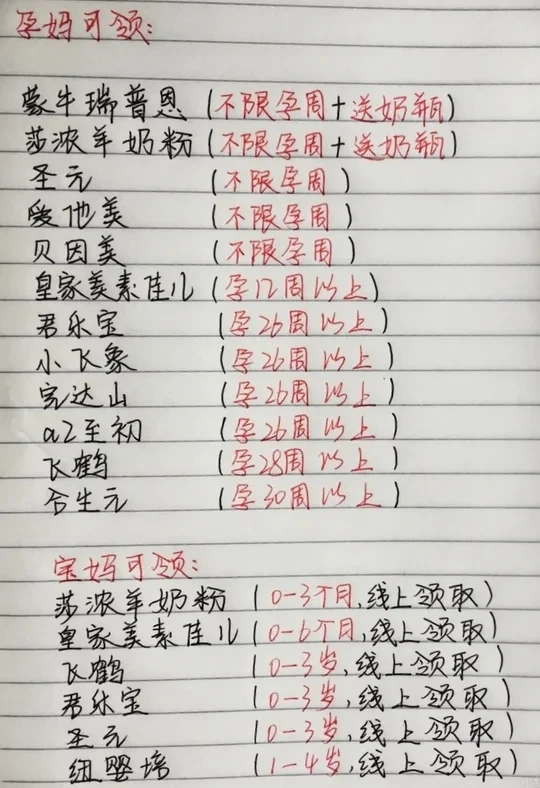 孕妈可领:
蒙牛瑞普恩(不限孕周+送奶瓶)
莎浓羊奶粉(不限孕周+送奶瓶)
圣元(不限孕周)
爱他美(不限孕周)
贝因美(不限孕周)
皇家美素佳儿(孕12周以上)
君乐宝(孕26周以上)
小飞象(孕26周以上)
完达山(孕26周以上)
a2至初(孕26周以上)
飞鹤(孕28周以上)
合生元(孕30周以上)
宝妈可领:
莎浓羊奶粉(0-3个月,线上领取)
皇家美素佳儿(0-6个月,线上领取)
飞鹤(0-3岁,线上领取)
君乐宝(0-3岁,线上领取)
圣元(0-3岁,线上领取)
纽婴培(1-4岁,线上领取)